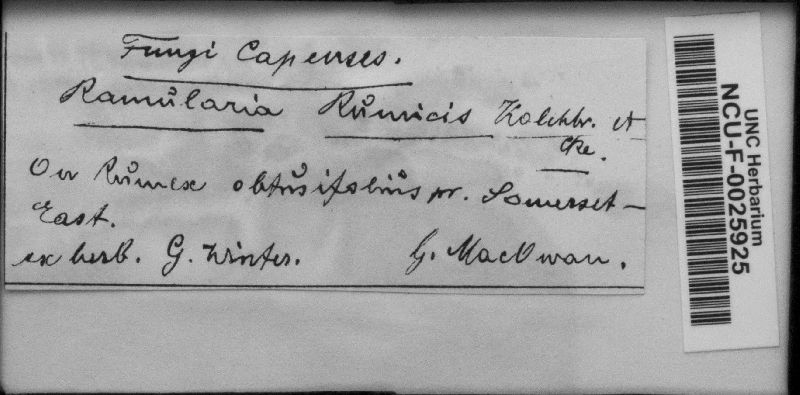 Fungi Capenses.
Ramŭlaria Rŭmicis Kalchbr. et
Cke.
On Rŭmex obtŭsifoliŭs pr. Somerset-
East.
ex herb. G. Winter.
G. MacOwan.
UNC Herbarium
NCU-F-0025925